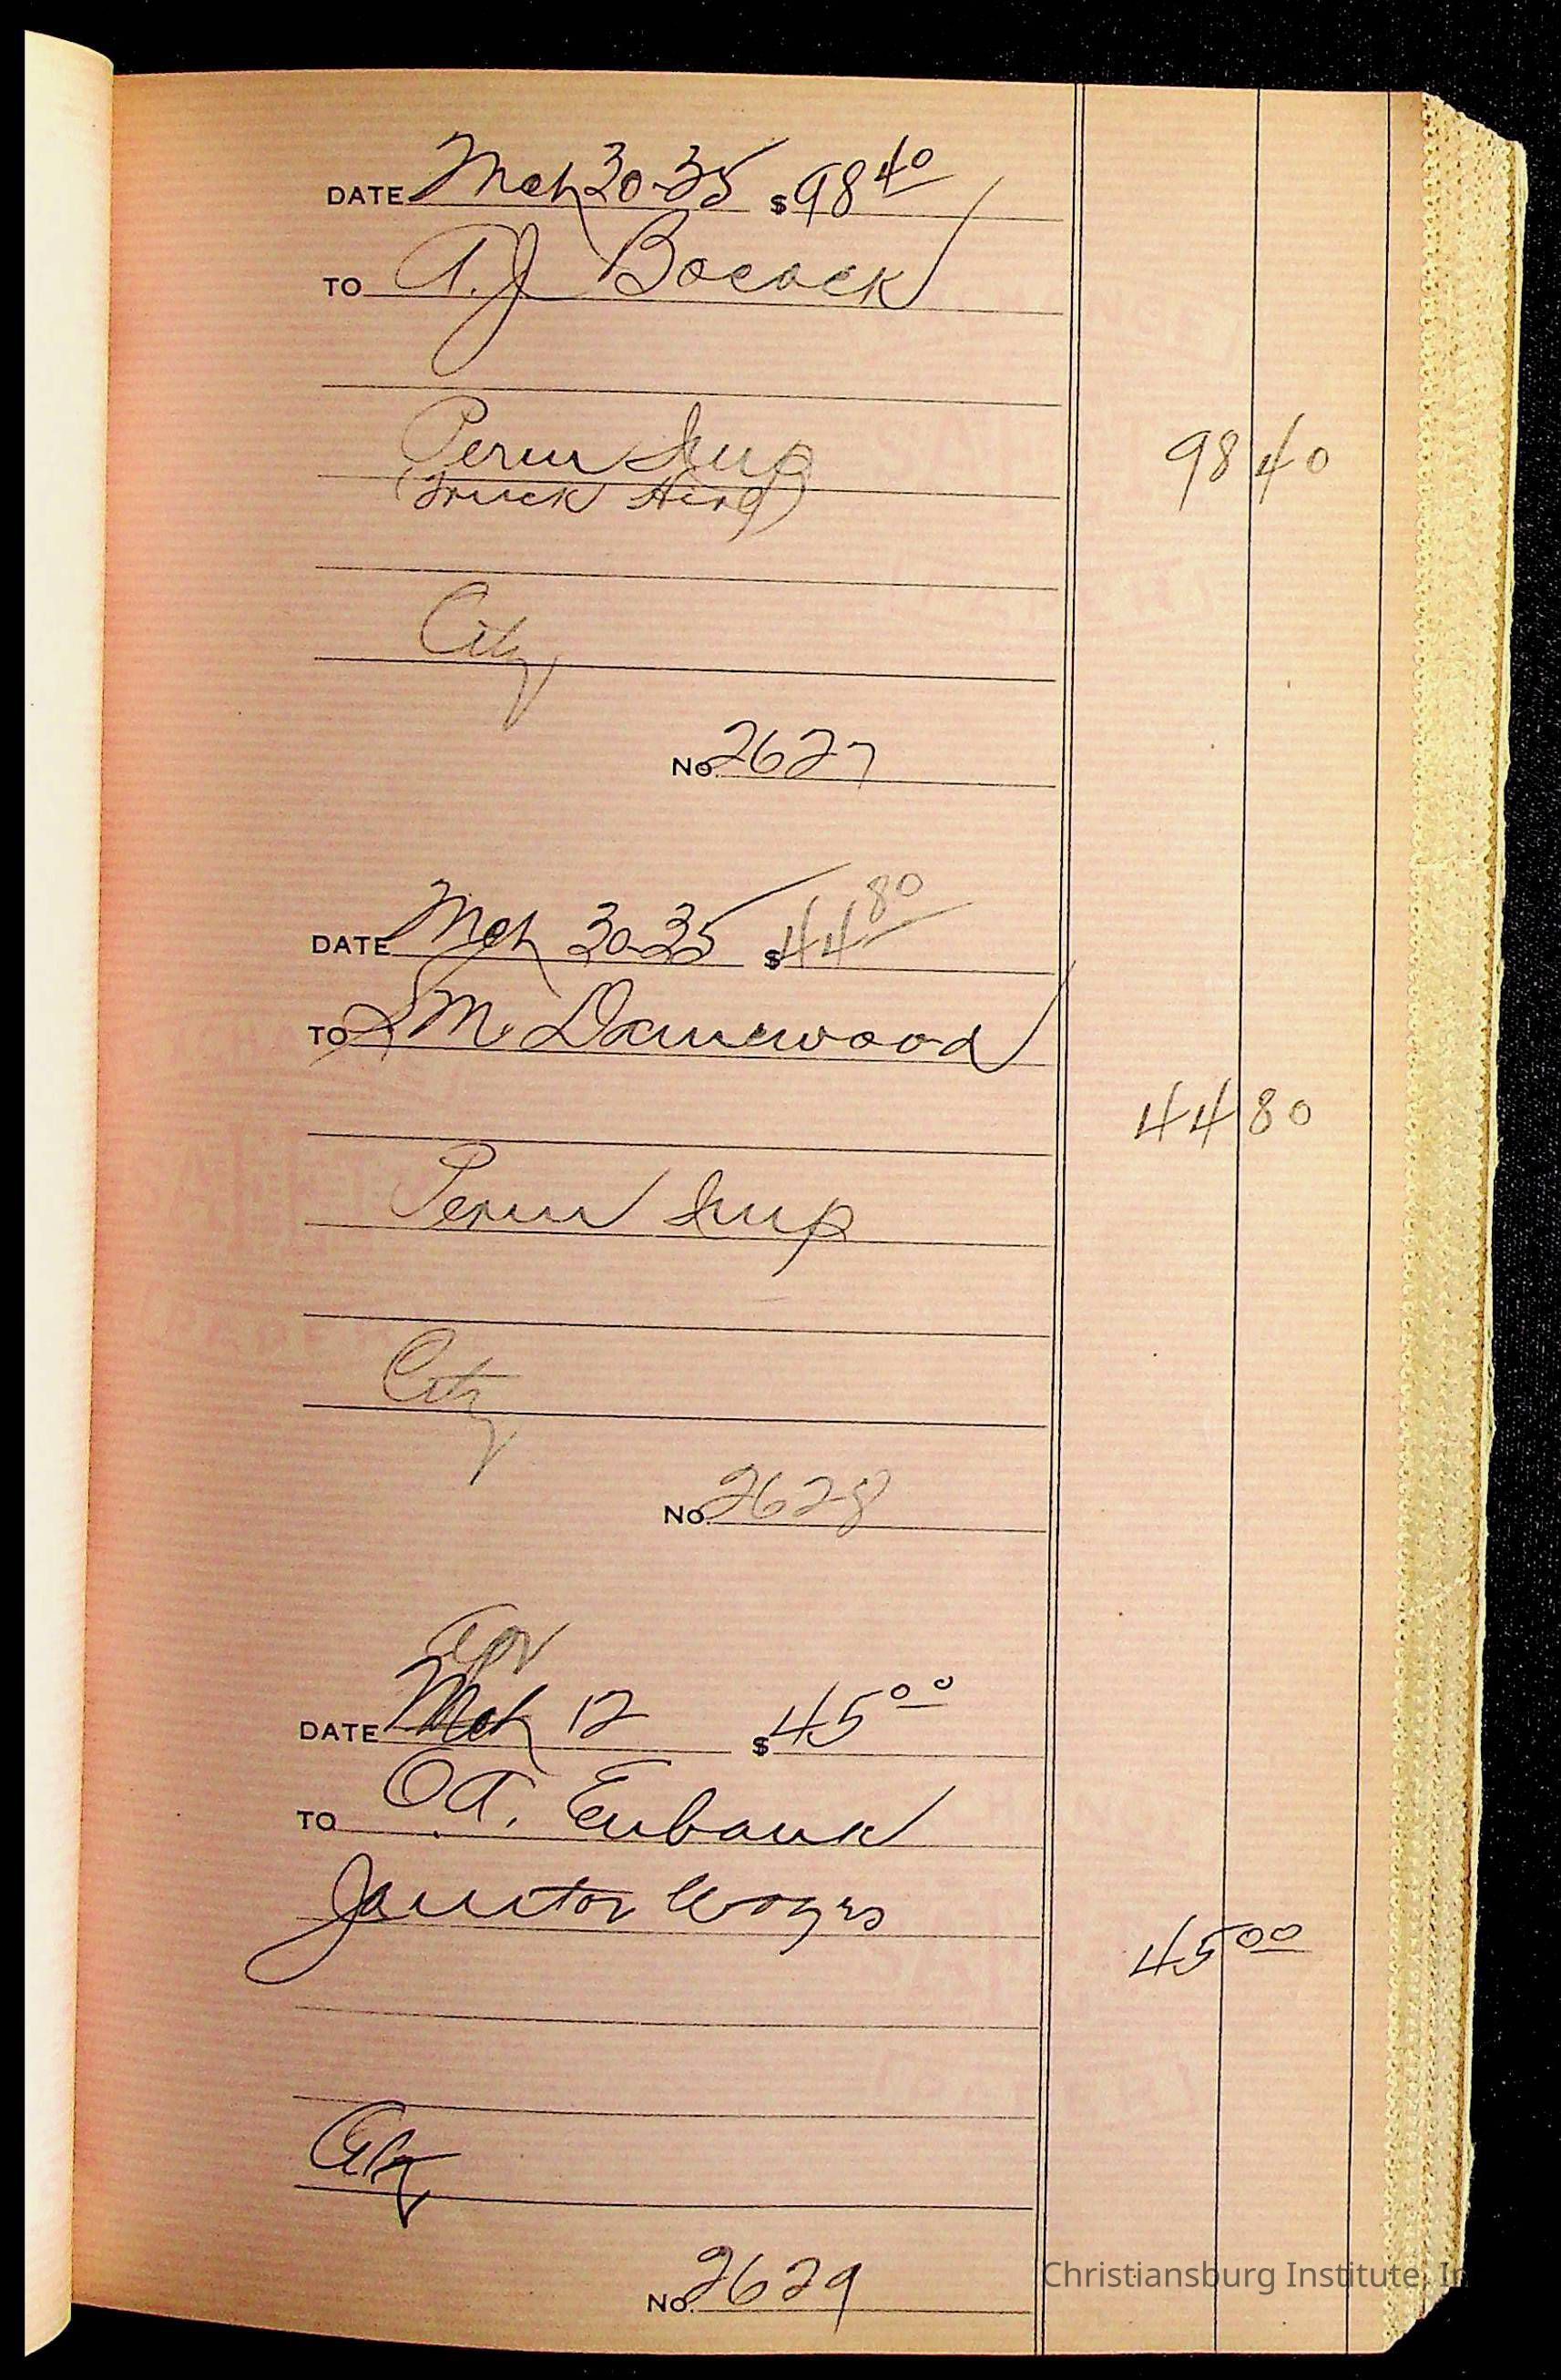 DATE Mch 30-35 $98 40
TO A.J Bocock
Perm Imp
98 40
(Truck Hire)
City
No. 2627
DATE Mch 30-35 $44 80
TO S M. Danewood
44 80
Perm Imp
City
No. 2628
Apr
DATE Mch 12 $45 00
TO O A. Eubank
Janitor Wages
45 00
City
No. 2629
Christiansburg Institute, In